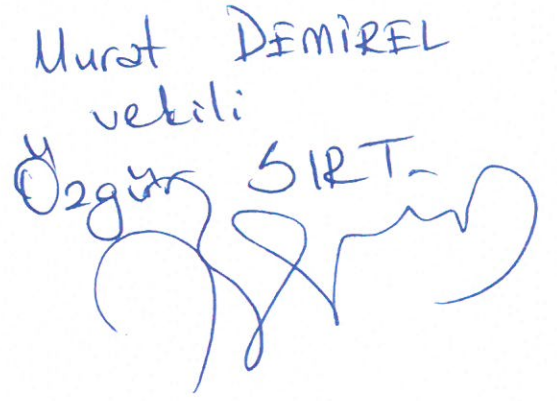 Murat DEMİREL
vekili
Özgür SIRT